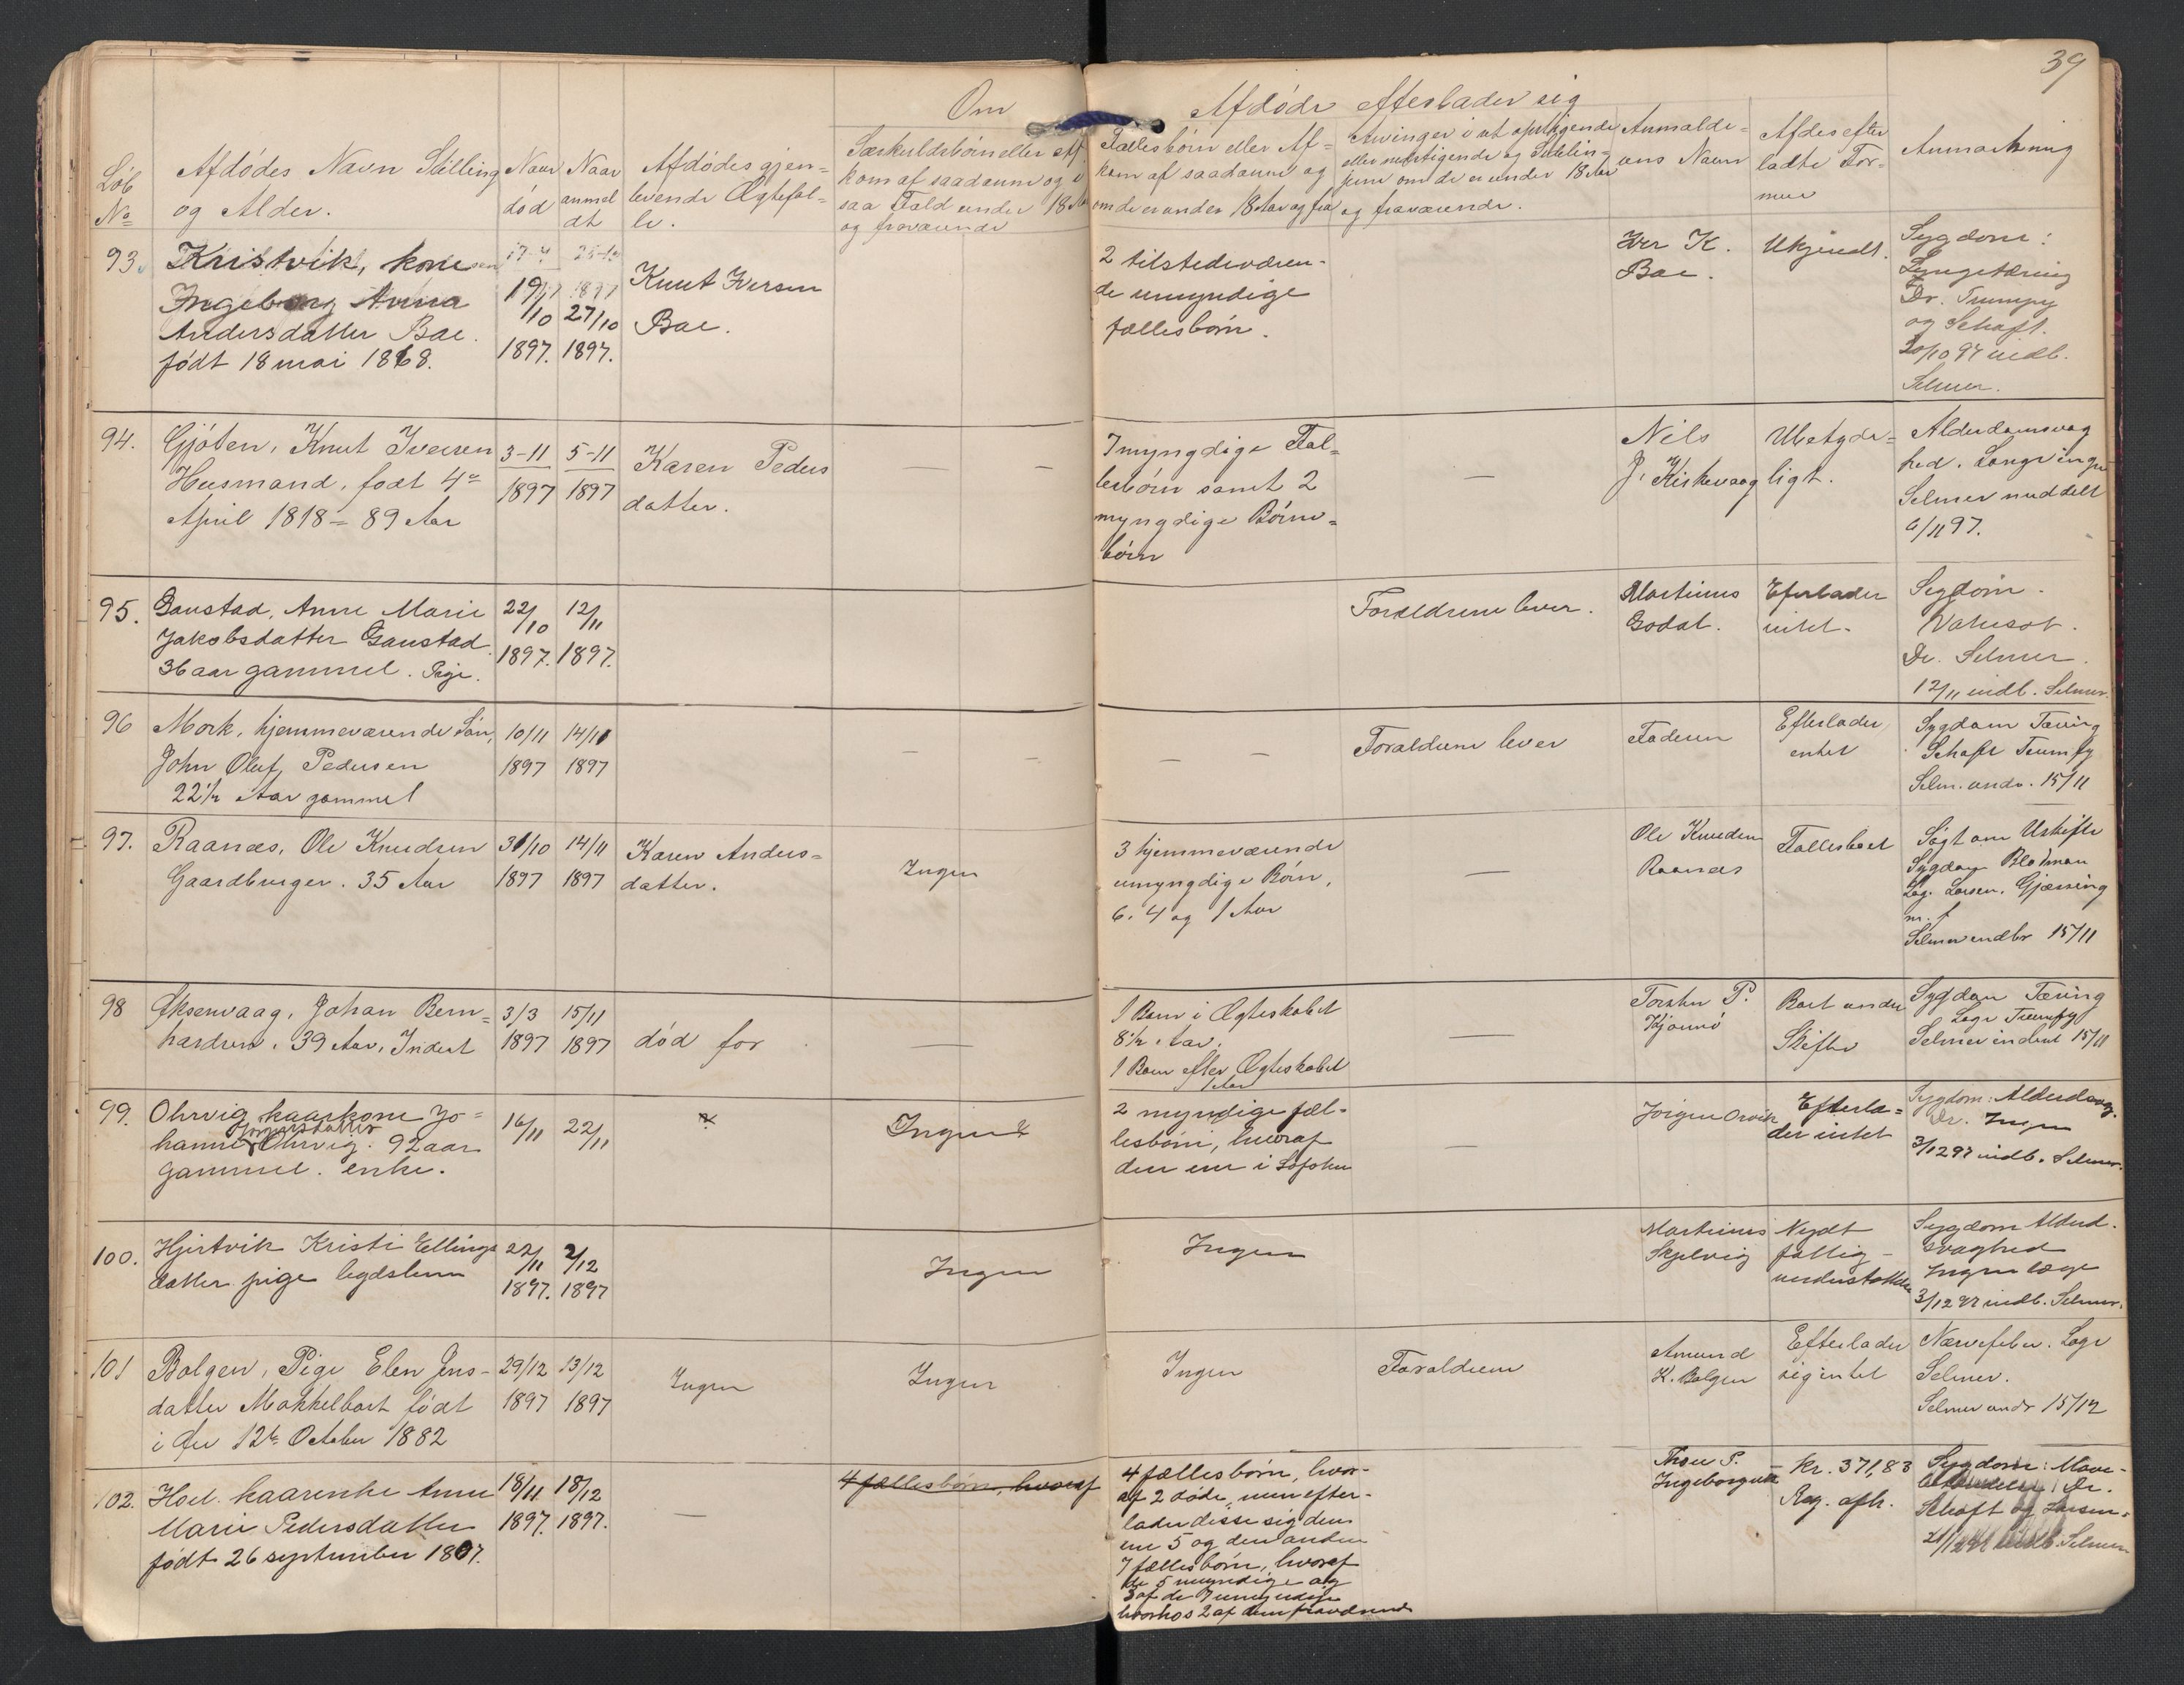 39
Om Afdöde efterlader sig
Löb
No
Afdödes Navn Stilling
og Alder.
Naar
död
Naar
anmel
dt
Afdödes gjen=
levende Ægtefæl-
le.
Særkuldsbörn eller Af
kom af saadanne og i
saa Fald under 18 Aar
og fraværende
Fællesbörn eller Af=
kom af saadanne og
om de er under 18 Aar og fra
Arvinger i ret opstigende
eller nedstigende og Sidelin-
jerne om de er under 18 Aar
og fraværende.
Anmelde=
rens Navn
Afdes efter
ladte For-
mue
Anmærkning
93.
Kristvik, kone
Ingeborg Anna
Andersdatter Bae.
født 18 mai 1868.
19/10
1897.
27/10
1897.
Knut Iversen
Bae.
2 tilstedeværen-
de umyndige
fællesbörn.
Iver K.
Bae.
Ukjendt.
Sygdom:
Lungetæring
Dr. Trumpy
og Schaft.
30/10 97 indb.
Selmer.
94.
Gjöten, Knut Iversen
Husmand, født 4de
April 1818 = 89 Aar
3-11
1897
5-11
1897
Karen Peders
datter.
— —
7 myngdige Fæl=
lesbörn samt 2
myngdige Börne=
börn
—
Nils
J. Kirkevaag
Ubetyde=
ligt.
Alderdomsvag
hed. Læge ingen
Selmer meddelt
6/11 97.
95.
Gaustad, Anne Marie
Jakobsdatter Gaustad.
36 aar gammel. Pige.
22/10
1897.
12/11
1897.
Forældrene lever.
Martinus
Godal.
Eferlader
intet.
Sygdom.
Vatersot.
Dr. Selmer.
12/11 indb. Selmer.
96
Mork, hjemmeværende Sön,
John Oluf Pedersen
22½ Aar gammel
10/11
1897
14/11
1897
— —
— —
Forældrene lever
Faderen
Efterlader
entet
Sygdom Tæring
Schaft Trumpy
Selm. under. 15/11
97.
Raanes, Ole Knudsen
Gaardbruger. 35 Aar
31/10
1897
14/11
1897
Karen Anders=
datter.
Ingen
3 hjemmeværende
umyngdige Börn,
6. 4 og 1 Aar
—
Ole Knudsen
Raanæs
Fællesboet
Sögt om Uskifte
Sygdom
Læg. Larsen, Gjæssing
m. f
Selmer indbr 15/11
98
Øksenvaag, Johan Bern=
hardsen. 39 Aar, Inderst
3/3
1897
15/11
1897
död for
—
1 Barn i Ægteskabet
8½ Aar.
1 Barn efter Ægteskabet
1 Aar
—
Torsten P.
Kjönnö
Boet under
Skifte
Sygdom Tæring
Læge Trumpy
Selmer indbret 15/11
99.
Ohrvig kaarkone Jo=
hanne Ohrvig. 92 aar
gammel. enke.
16/11
22/11
Ingen
2 myndige fæl-
lesbörn, hvoraf
den ene i Lofoten
—
Jörgen Orvik
Efterla=
der intet
Sygdom: Alderdsvag.
Dr. Ingen
3/12 97 indb. Selmer.
100.
Hjertvik Kristi Ellings
datter pige legdslem
22/11
1897.
2/12
1897
Ingen
Ingen
Martinus
Skjelvig
Nydt
fattig-
understøttelse
Sygdom Alderd.
svaghed
Ingen læge
3/12 97 indb. Selmer.
101
Bolgen, Pige Elen Jens-
datter Mokkelbost født
i Øre 12te October 1882
29/12
1897
13/12
1897
Ingen
Ingen
Ingen
Forældrene
Amund
K. Bolgen
Efterlader
sig intet
Nærvefeber. Læge
Selmer.
Selmer undr 15/12
102.
Hoel. kaarenke Anne
Marie Pedersdatter
født 26 september 1807.
18/11
1897.
18/12
1897.
—
4 fællesbörn, hvoraf
4 fællesbörn, hvor-
af 2 döde, men efter-
lader disse sig den
ene 5 og den anden
7 fællesbörn, hvoraf
de 5 myndige og
3 af de 7 umyndige
hvorhos 2 af dem fraværende
Thore P.
Ingeborgvik
kr. 371,83
Reg. afh.
Sygdom: Mave-
betændelse, Dr.
Schaft og Larsen.
21/12 97 indb. Selmer